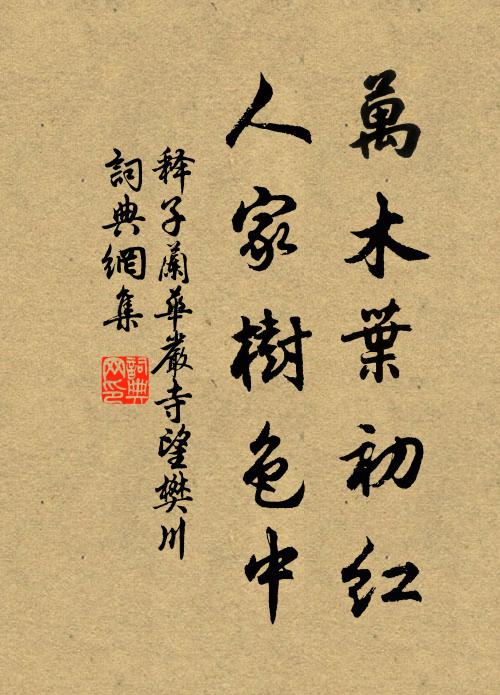 萬木葉初紅
人家樹色中
释子蘭華嚴寺望樊川
詞典網集
詞典网印